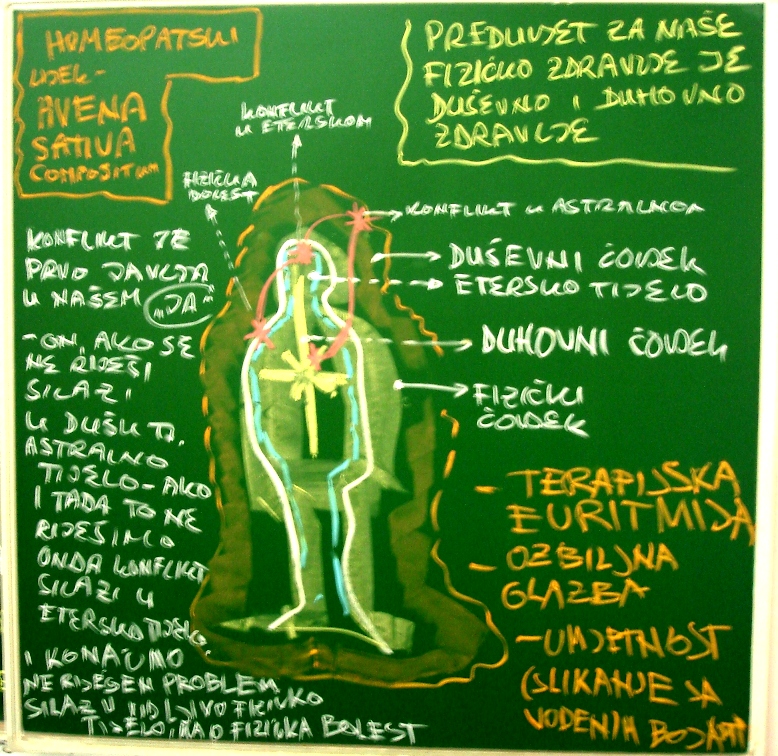 HOMEOPATSKI
LIJEK-
AVENA
SATIVA
COMPOSITUM
PREDUVJET ZA NAŠE
FIZIČKO ZDRAVLJE JE
DUŠEVNO I DUHOVNO
ZDRAVLJE
KONFLIKT
U ETERSKOM
FIZIČKA
BOLEST
KONFLIKT U ASTRALNOM
DUŠEVNI ČOVJEK
ETERSKO TIJELO
DUHOVNI ČOVJEK
FIZIČKI
ČOVJEK
KONFLIKT SE
PRVO JAVLJA
U NAŠEM „JA“
-ON, AKO SE
NE RIJEŠI
SILAZI
U DUŠU TJ.
ASTRALNO
TIJELO-AKO
I TADA TO NE
RIJEŠIMO
ONDA KONFLIKT
SILAZI U
ETERSKO TIJELO.
I KONAČNO
NERIJEŠEN PROBLEM
SILAZI U VIDLJIVO FIZIČKO
TIJELO, KAO FIZIČKA BOLEST
- TERAPIJSKA
EURITMIJA
- OZBILJNA
GLAZBA
- UMJETNOST
(SLIKANJE SA
VODENIH BOJAMA